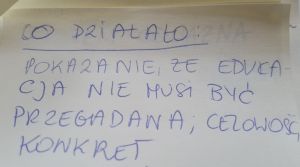 CO DZIAŁAŁO:
POKAZANIE, ŻE EDUKA-
CJA NIE MUSI BYĆ
PRZEGADANA; CELOWOŚĆ,
KONKRET